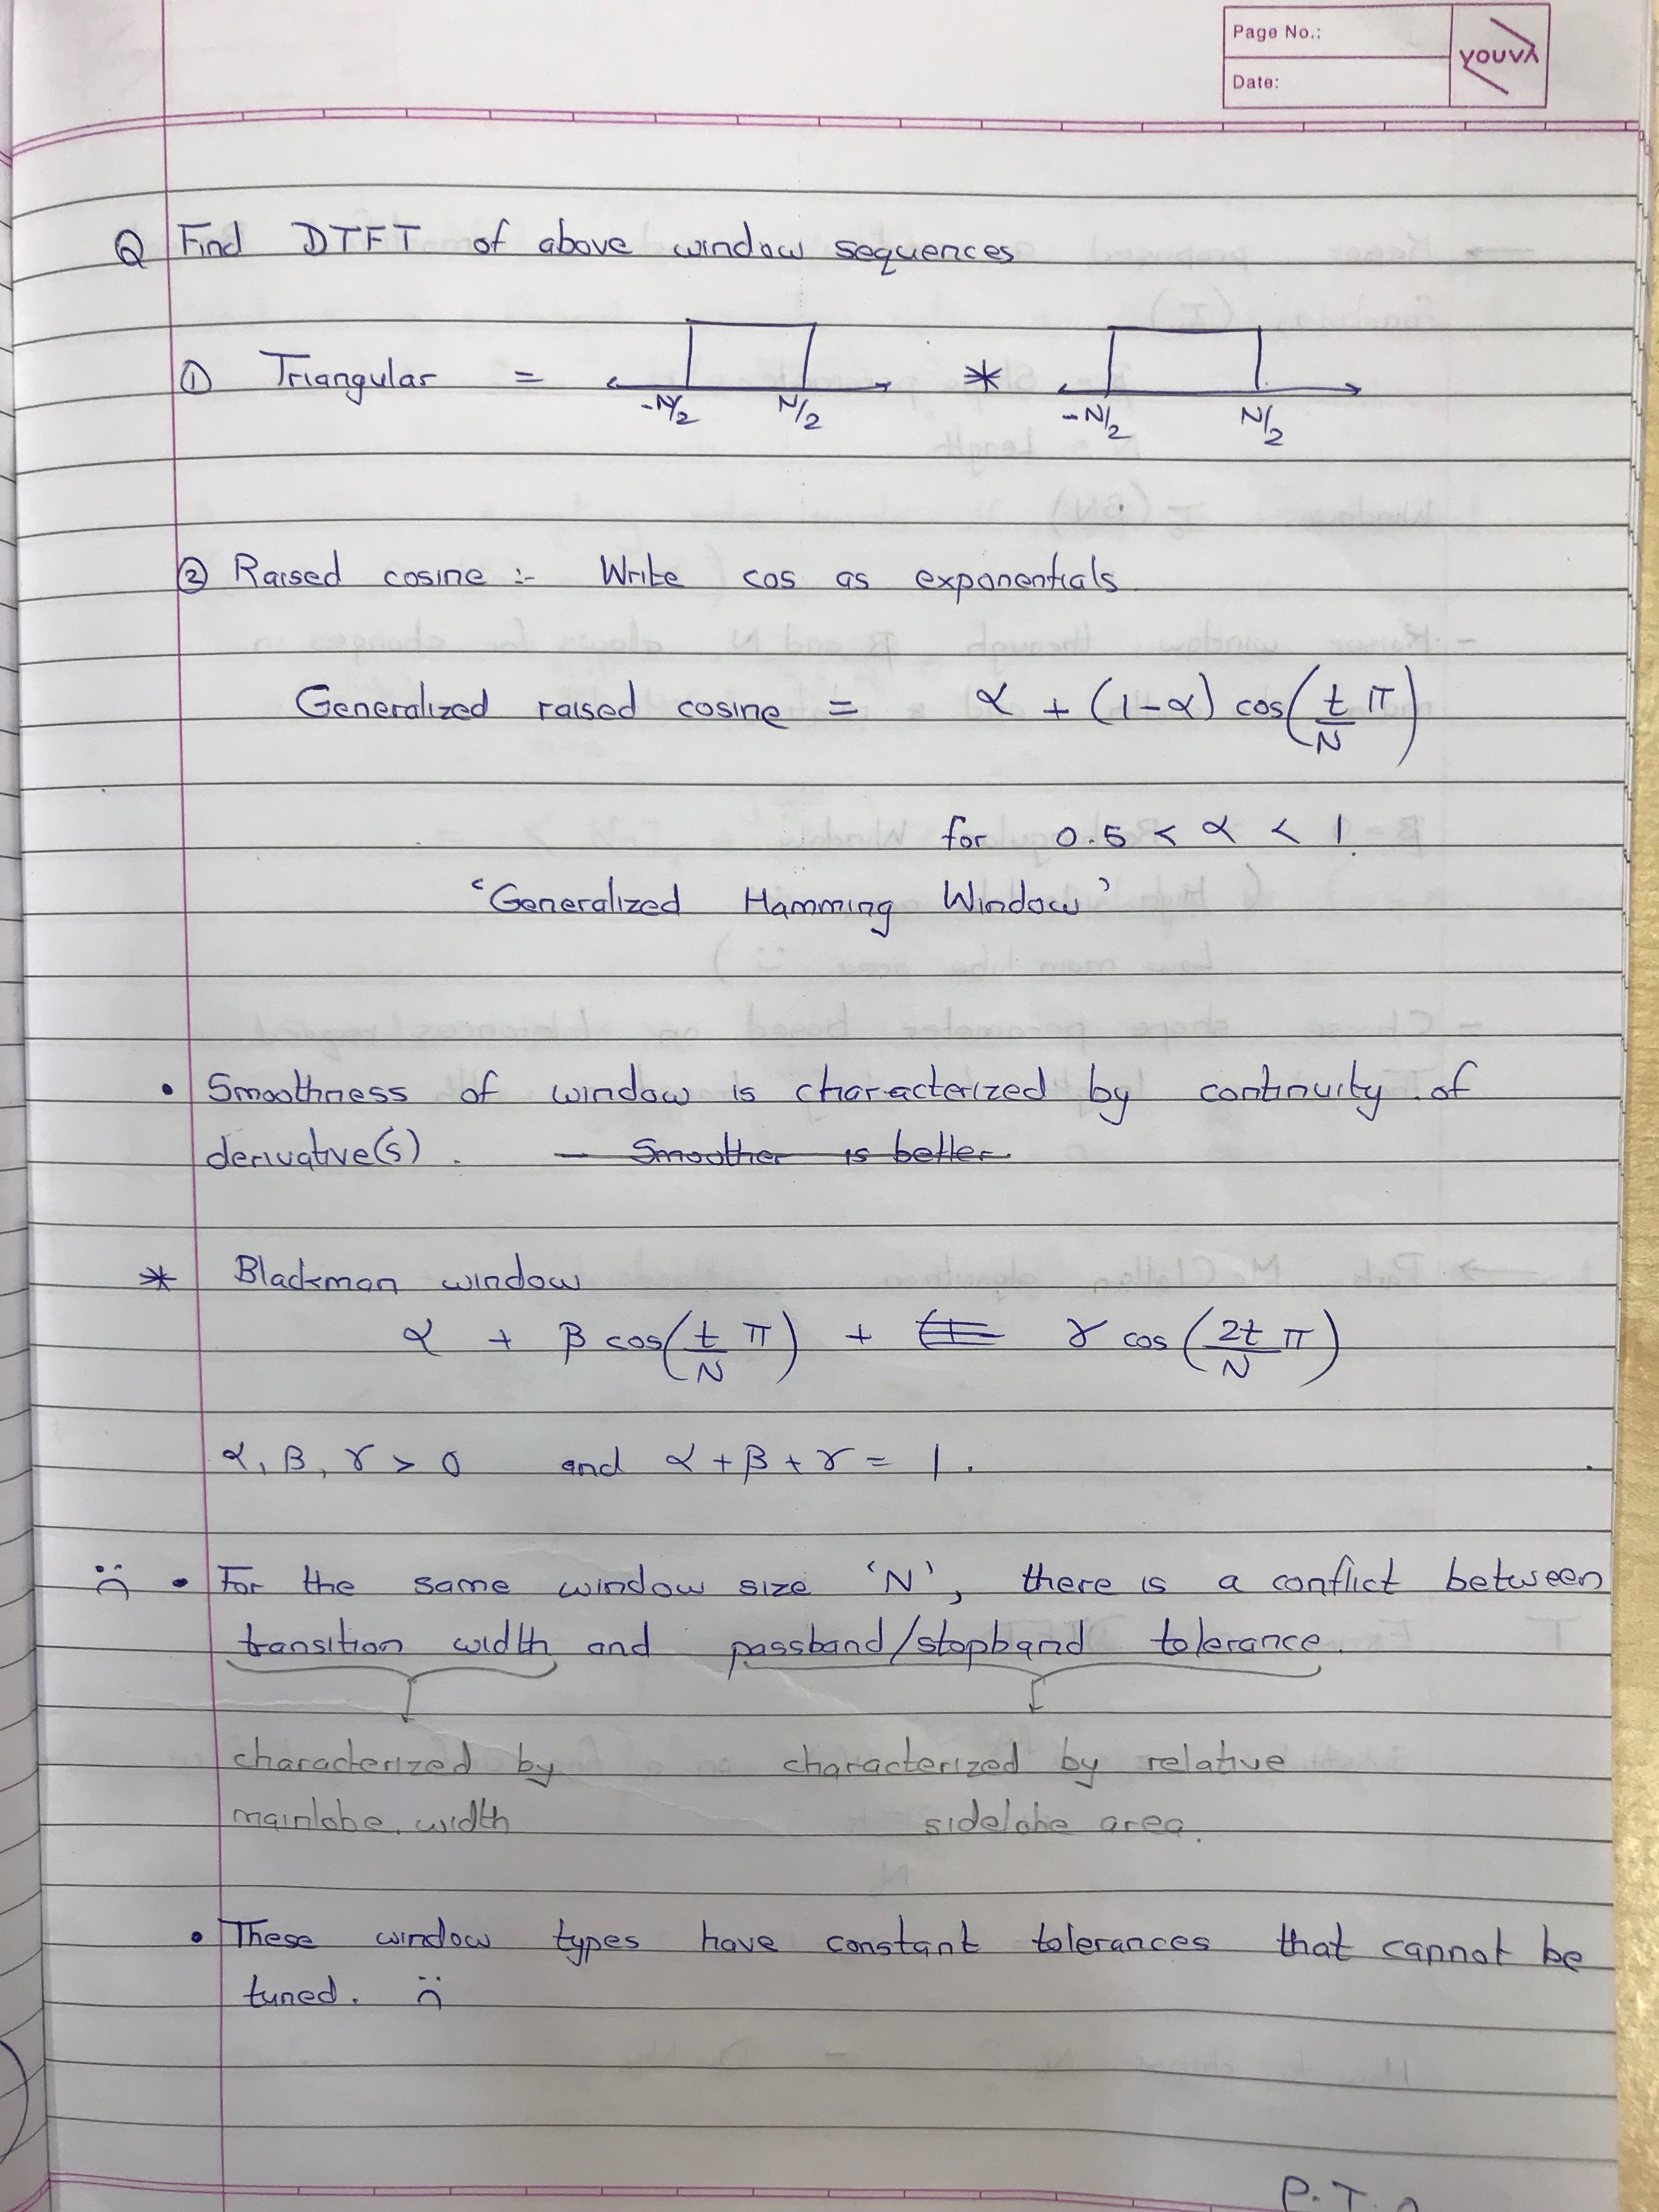 Page No.:
Date:
YOUVA
Q Find DTFT of above window sequences
① Triangular = * 
-N/2 N/2 -N/2 N/2
② Raised cosine :- Write cos as exponentials
Generalized raised cosine = α + (1-α) cos(t/N π)
for 0.5 < α < 1
'Generalized Hamming Window'
• Smoothness of window is characterized by continuity of
derivative(s). — Smoother is better
* Blackman window
α + β cos(t/N π) + γ cos(2t/N π)
α, β, γ > 0 and α + β + γ = 1.
• For the same window size 'N', there is a conflict between
transition width and passband/stopband tolerance.
characterized by characterized by relative
mainlobe width sidelobe area.
• These window types have constant tolerances that cannot be
tuned.
P.T.O